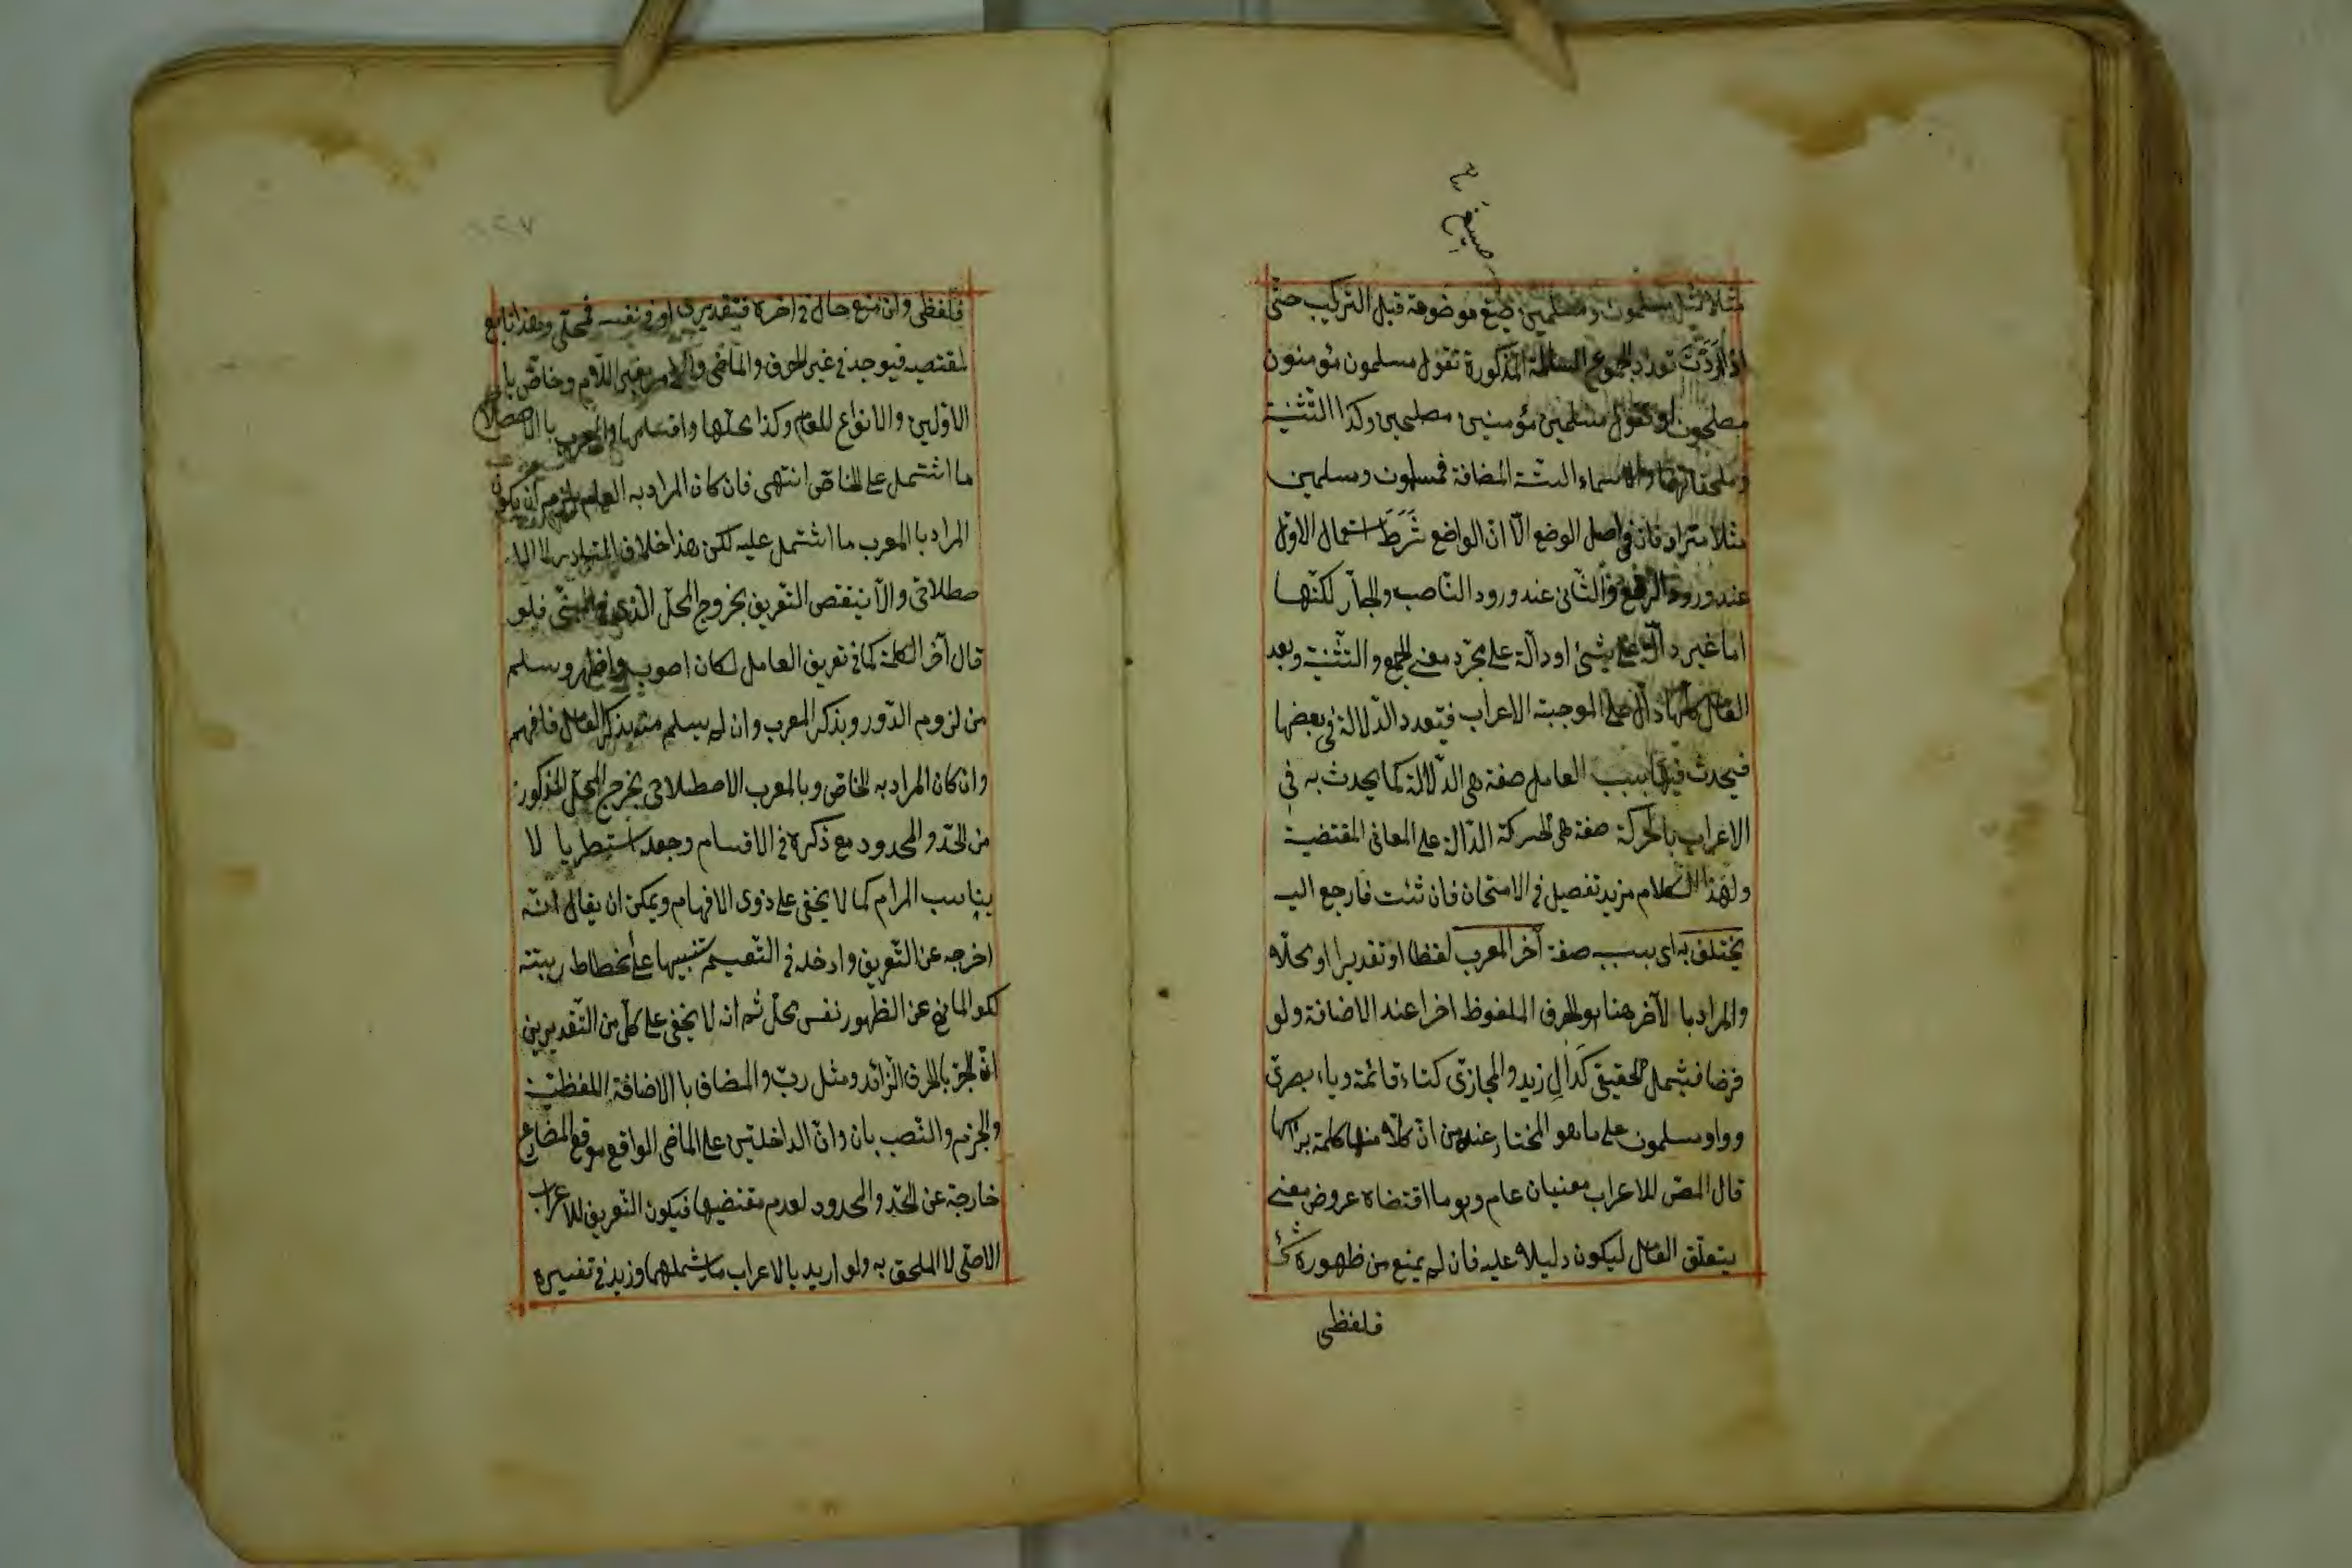 صيغ
مثلا مثل مسلمون ومسلمين صيغ موضوعة قبل التركيب حتى
اذا اردت تورد الجموع السالمة المذكورة تقول مسلمون مؤمنون
مصلحون او تقول مسلمين مؤمنين مصلحين وكذا التثنية
وملحقاتهما والاسماء الستة المضافة فمسلمون ومسلمين
مثلا مترادفان في اصل الوضع الّا انّ الواضع شَرَطَ استعمال الاوّل
عند ورود الرافع والثّانى عند ورود النّاصب والجارّ لكنّها
اما غير دالّة على شئ او دالّة على مجرّد معنى الجمع والتثنية وبعد
العامل كلّها دالّ على الموجبة الاعراب فيتعدد الدّلالة فى بعضها
فيحدث فيها بسبب العامل صفة هى الدّلالة كما يحدث به فى
الاعراب بالحركة صفة هى الحركة الدّالة على المعانى المقتضية
ولهذا الكلام مزيد تفصيل فى الامتحان فان شئت فارجع اليه
يختلف به اى بسبب صفة آخر المعرب لفظا او تقديرا او محلّا
والمراد بالآخر هنا هو الحرف الملفوظ اخرا عند الاضافة ولو
فرضا فيشمل الحقيقى كدال زيد والمجازى كتاء قائمة وياء بصرىّ
وواو مسلمون على ما هو المختار عنده من انّ كلّا منها كلمة برأسها
قال المص للاعراب معنيان عام وهو ما اقتضاه عروض معنى
يتعلّق العامل ليكون دليلا عليه فان لم يمنع من ظهوره شئ
فلفظى
٢٧
فلفظى وان منع حال فى اخره فتقديرى او فى نفسه فمحلى وهذا تابع
لمقتضيه فيوجد فى غير الحرف والماضى والامر بغير اللّام وخاصّ با
الاوّلين والانواع للعام وكذا محلّها واقسامها والمعرب بالاصطلاحى
ما اشتمل على الخاصّ انتهى فان كان المراد به العام يلزم ان يكون
المراد با المعرب ما اشتمل عليه لكن هذا خلاف المتبادر
صطلاحى والّا ينتقض التعريف بخروج المحلّ الّذى فى المبنى فلو
قال آخر الكلمة كما فى تعريف العامل لكان اصوب واظهر وسلم
من لزوم الدّور وبذكر المعرب وان لم يسلم منه بذكر العامل فافهم
وان كان المراد به الخاصّ وبالمعرب الاصطلاحى يخرج المحلّ المذكور
من الحدّ والمحدود مع ذكره فى الاقسام وجعله استطريا لا
يناسب المرام كما لا يخفى على ذوى الافهام ويمكن ان يقال انّه
اخرجه عن التّعريف وادخله فى التّعميم تنبيها على انحطاط رتبته
لكو المانع عن الظهور نفس محلّ ثم انه لا يخفى على كلّ من التّقديرين
انّ الجرّ بالحرف الزّائد ومثل ربّ والمضاف با الاضافة اللفظيّة
والجزم والنّصب بان وانّ الداخلتين على الماضى الواقع موقع المضارع
خارجة عن الحدّ والمحدود لعدم مقتضيها فيكون التّعريف للاعراب
الاصلى لا الملحق به ولو اريد بالاعراب ما يشملهما وزيد فى تفسيره